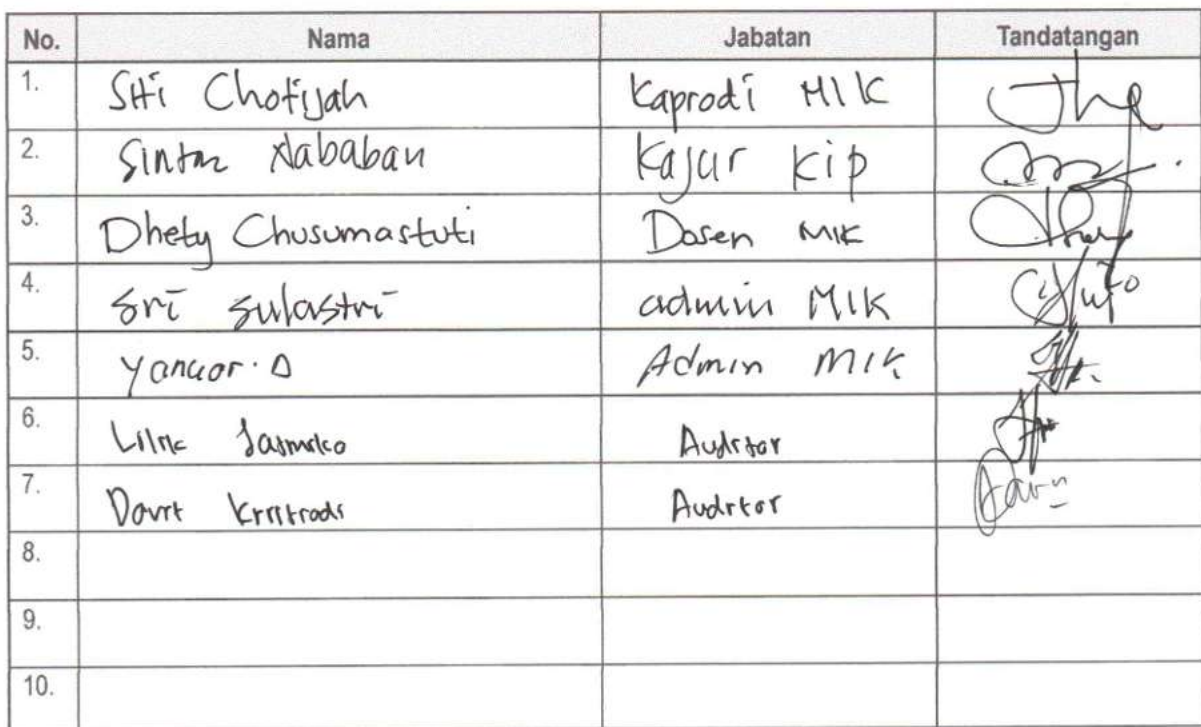 No. Nama Jabatan Tandatangan
1. Siti Chofijah Kaprodi MIK
2. Sinta Nababan Kajur KIP
3. Dhety Chusumastuti Dosen MIK
4. Sri Sulastri admin MIK
5. Yanuar. D Admin MIK
6. Lilik Auditor
7. Auditor
8.
9.
10.